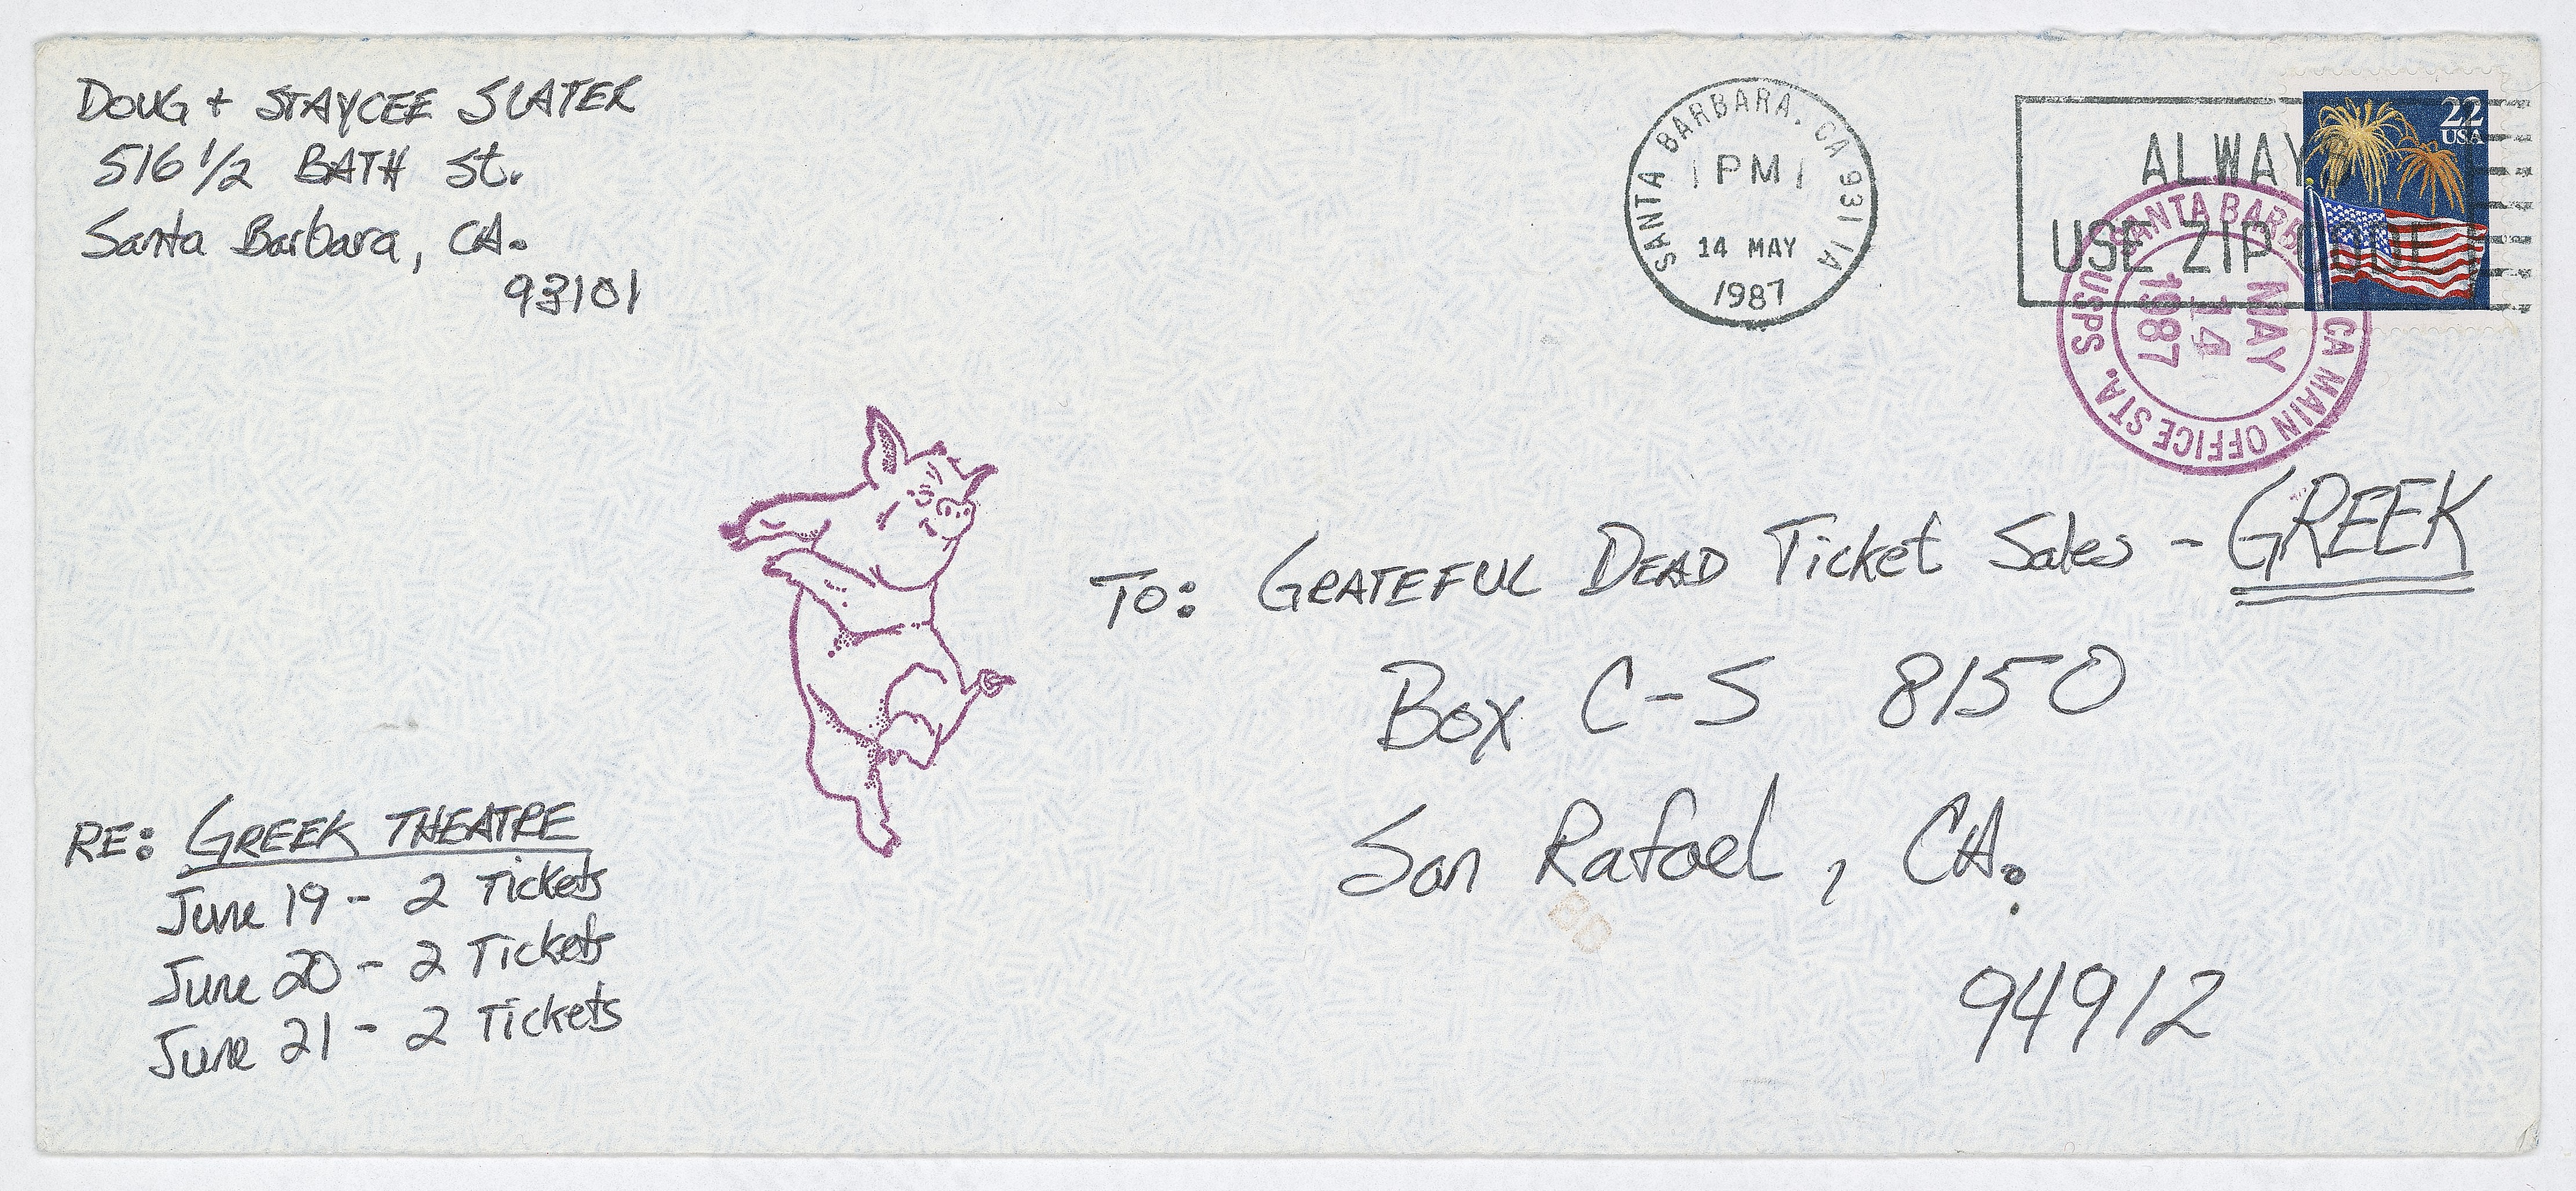 DOUG + STAYCEE SLATER
516 1/2 BATH St.
Santa Barbara, CA.
93101
SANTA BARBARA, CA 931 1A
PM
14 MAY
1987
ALWAYS
USE ZIP CODE
22
USA
SANTA BARBARA CA MAIN OFFICE STA. USPS
MAY
14
1987
TO: GRATEFUL DEAD Ticket Sales - GREEK
Box C-S 8150
San Rafael, CA.
94912
RE: GREEK THEATRE
June 19 - 2 Tickets
June 20 - 2 Tickets
June 21 - 2 Tickets